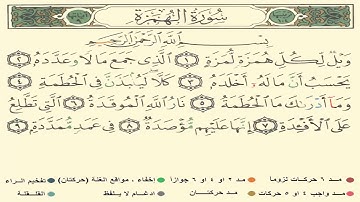 سُورَةُ الْهُمَزَةِ
بِسْمِ اللَّهِ الرَّحْمَٰنِ الرَّحِيمِ
وَيْلٌ لِّكُلِّ هُمَزَةٍ لُّمَزَةٍ ١ الَّذِي جَمَعَ مَالًا وَعَدَّدَهُ ٢
يَحْسَبُ أَنَّ مَالَهُ أَخْلَدَهُ ٣ كَلَّا لَيُنبَذَنَّ فِي الْحُطَمَةِ ٤
وَمَا أَدْرَاكَ مَا الْحُطَمَةُ ٥ نَارُ اللَّهِ الْمُوقَدَةُ ٦ الَّتِي تَطَّلِعُ
عَلَى الْأَفْئِدَةِ ٧ إِنَّهَا عَلَيْهِم مُّؤْصَدَةٌ ٨ فِي عَمَدٍ مُّمَدَّدَةٍ ٩
مد ٦ حركات لزوما مد ٢ او ٤ او ٦ جوازاً إخفاء، ومواقع الغنة (حركتان) تفخيم الراء
مد واجب ٤ او ٥ حركات مد حركتان إدغام، وما لا يلفظ القلقلة